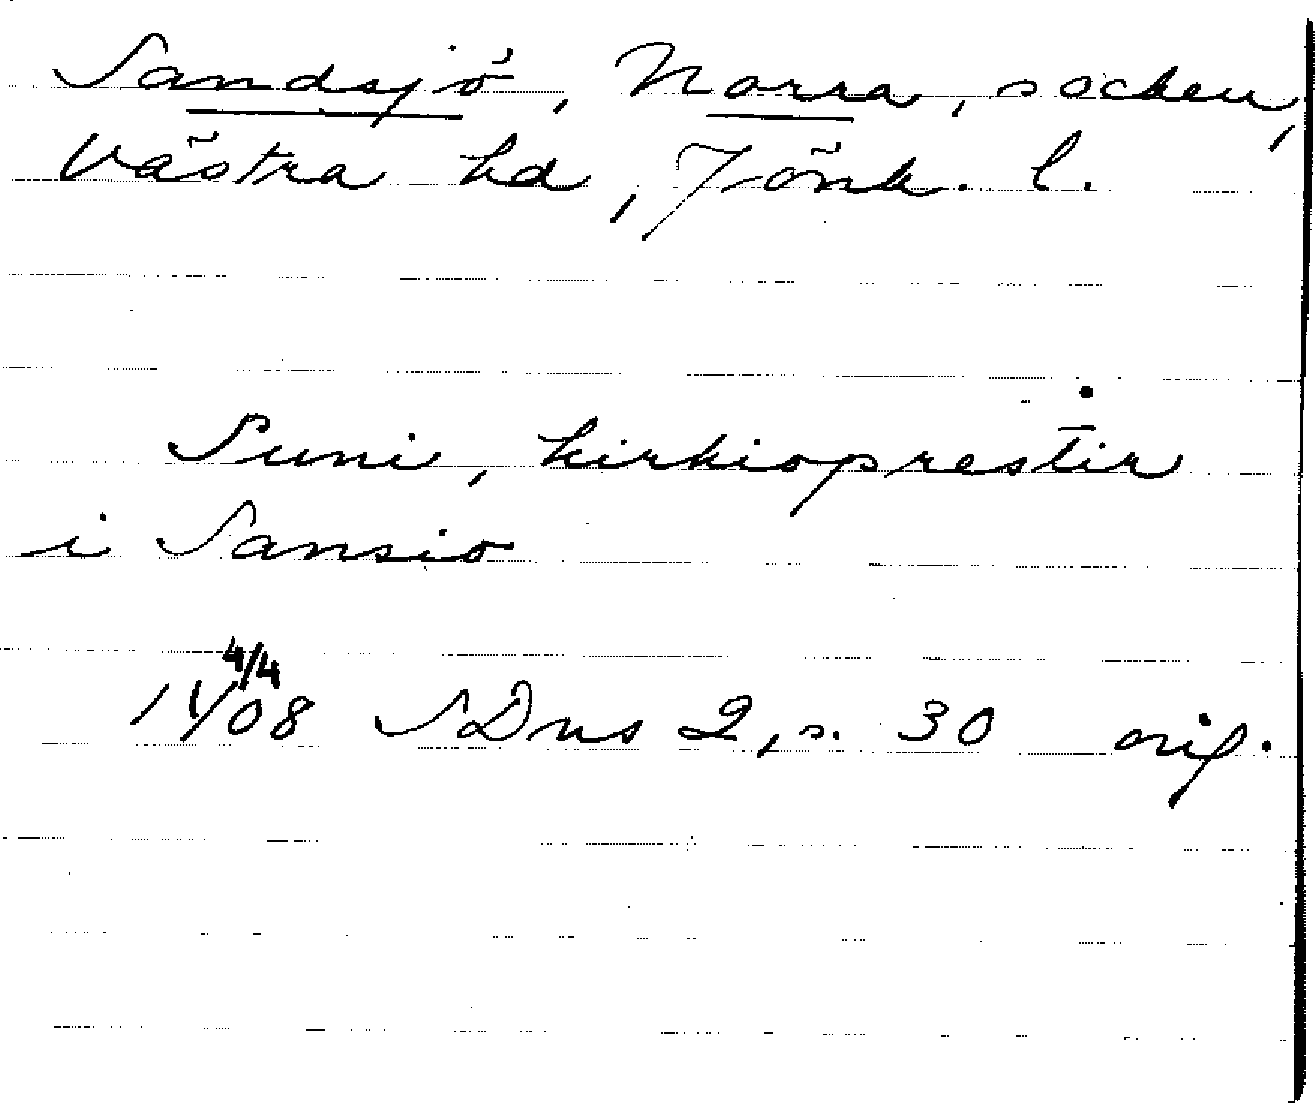 Sandsjö, Norra, socken,
Västra hd, Jönk. l.
Suni, kirkioprestir
i Sansio
1408 4/4 SDns 2, s. 30 orig.